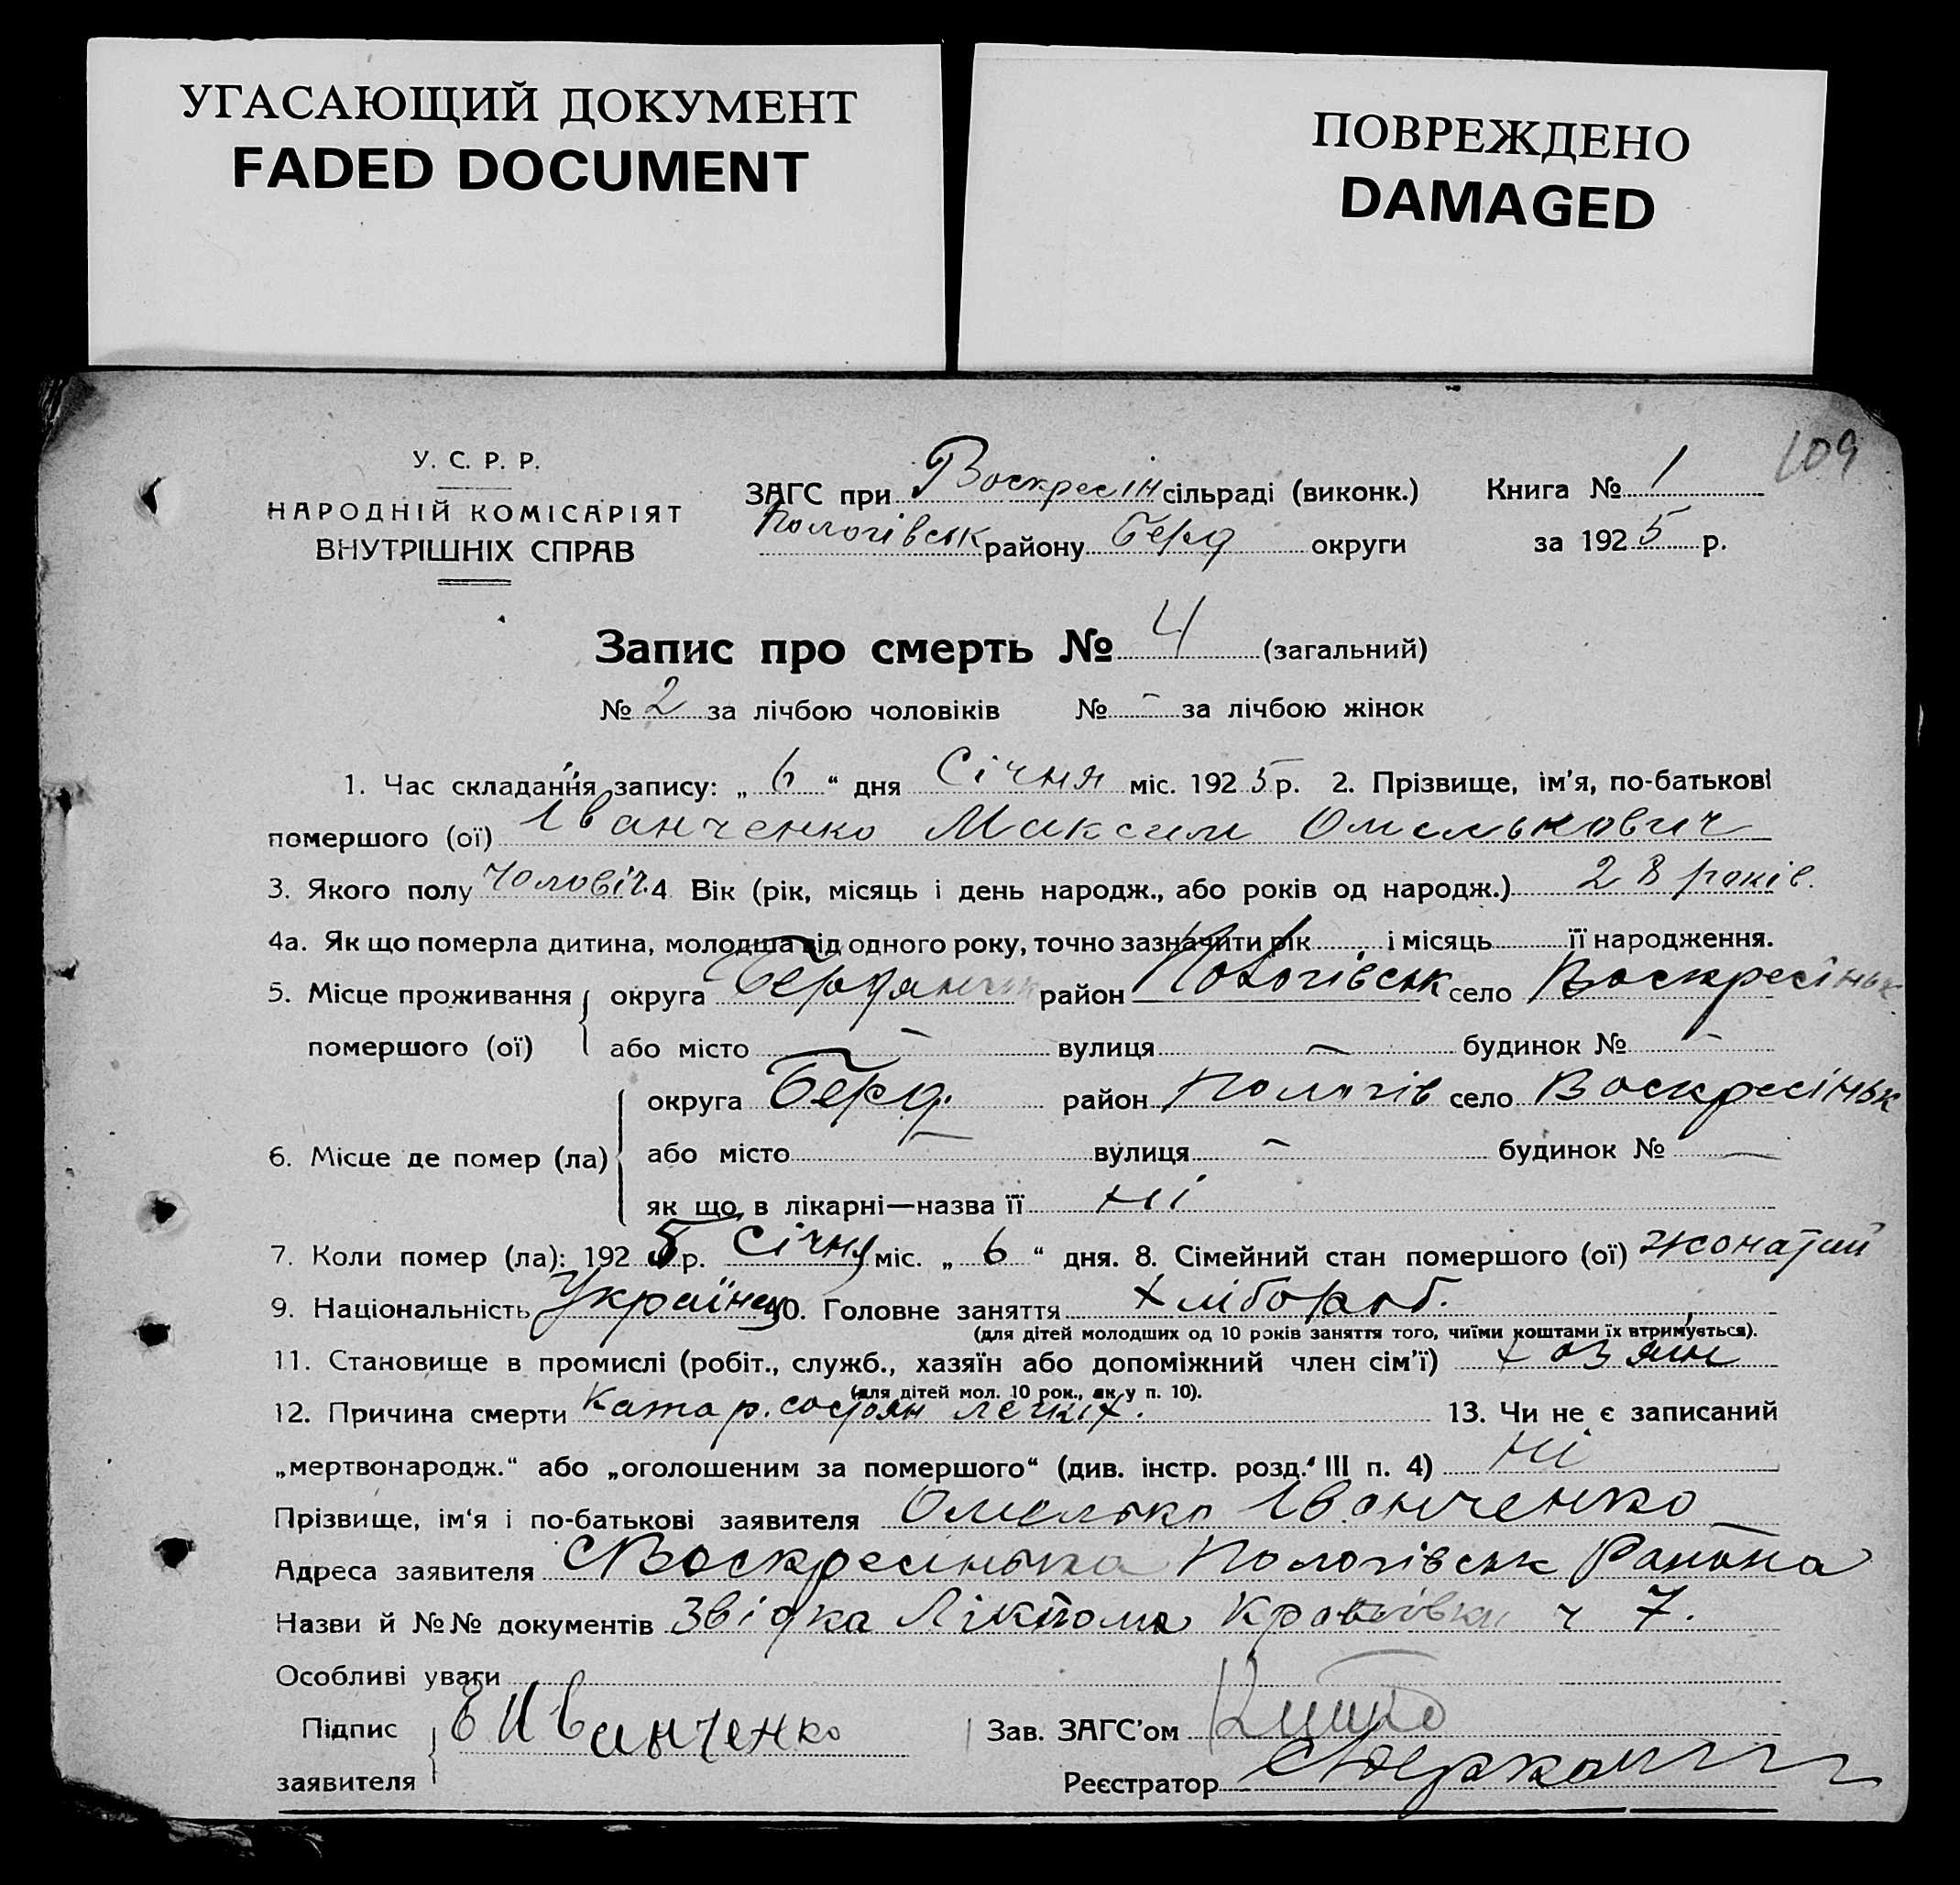 УГАСАЮЩИЙ ДОКУМЕНТ
FADED DOCUMENT
ПОВРЕЖДЕНО
DAMAGED
109
У. С. Р. Р.
НАРОДНІЙ КОМІСАРІЯТ
ВНУТРІШНІХ СПРАВ
ЗАГС при Воскресін сільраді (виконк.)
Пологівськ району Берд округи
Книга № 1
за 1925 р.
Запис про смерть № 4 (загальний)
№ 2 за лічбою чоловіків № - за лічбою жінок
1. Час складання запису: „ 6 “ дня Січня міс. 1925 р. 2. Прізвище, ім'я, по-батькові
помершого (ої) Іванченко Максим Омелькович
3. Якого полу чоловіч. 4 Вік (рік, місяць і день народж., або років од народж.) 28 років.
4а. Як що померла дитина, молодша від одного року, точно зазначити рік i місяць її народження.
5. Місце проживання округа Бердянськ район Пологівськ село Воскресінськ
помершого (ої) або місто - вулиця - будинок № -
округа Берд. район Пологів село Воскресінськ
6. Місце де помер (ла) або місто - вулиця - будинок № -
як що в лікарні—назва її ні
7. Коли помер (ла): 1925 р. Січня міс. „ 6 “ дня. 8. Сімейний стан помершого (ої) жонатий
9. Національність Українец 10. Головне заняття хлібороб.
(для дітей молодших од 10 років заняття того, чиїми коштами їх втримується).
11. Становище в промислі (робіт., служб., хазяїн або допоміжний член сім'ї) хозяин
(для дітей мол. 10 рок., як у п. 10).
12. Причина смерти Катар. состоян легких. 13. Чи не є записаний
„мертвонародж.“ або „оголошеним за помершого“ (див. інстр. розд. III п. 4) ні
Прізвище, ім'я і по-батькові заявителя Омелько Іванченко
Адреса заявителя с Воскресінька Пологівськ Района
Назви й №№ документів Звідка ч 7.
Особливі уваги
Підпис заявителя Е Иванченко
Зав. ЗАГС'ом
Реєстратор